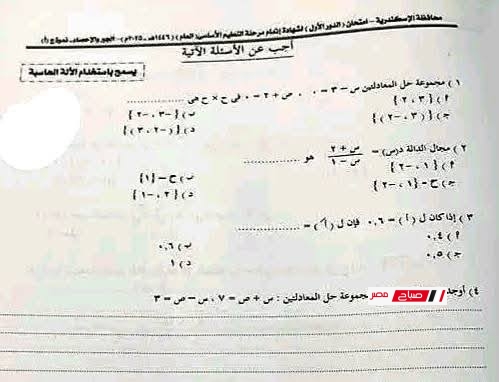 محافظة الإسكندرية - امتحان (الدور الأول) لشهادة إتمام مرحلة التعليم الأساسى (العام) (١٤٤٦هـ - ٢٠٢٥م) - الجبر والإحصاء - نموذج (أ)
أجب عن الأسئلة الآتية
يسمح باستخدام الآلة الحاسبة
١) مجموعة حل المعادلتين س - ٣ = ٠ ، ص + ٢ = ٠ فى ح × ح هى ..........
أ) {٣ ، ٢} ب) {-٣ ، -٢}
ج) {(٣ ، -٢)} د) {(-٢ ، ٣)}
٢) مجال الدالة د(س) = س + ٢ / س - ١ هو ..........
أ) {١ ، -٢} ب) ح - {١}
ج) ح - {١ ، -٢} د) {٢ ، -١}
٣) إذا كان ل (أ) = ٠,٦ فإن ل (أَ) = ..........
أ) ٠,٤ ب) ٠,٦
ج) ٠,٥ د) ١
٤) أوجد مجموعة حل المعادلتين : س + ص = ٧ ، س - ص = ٣
صباح مصر